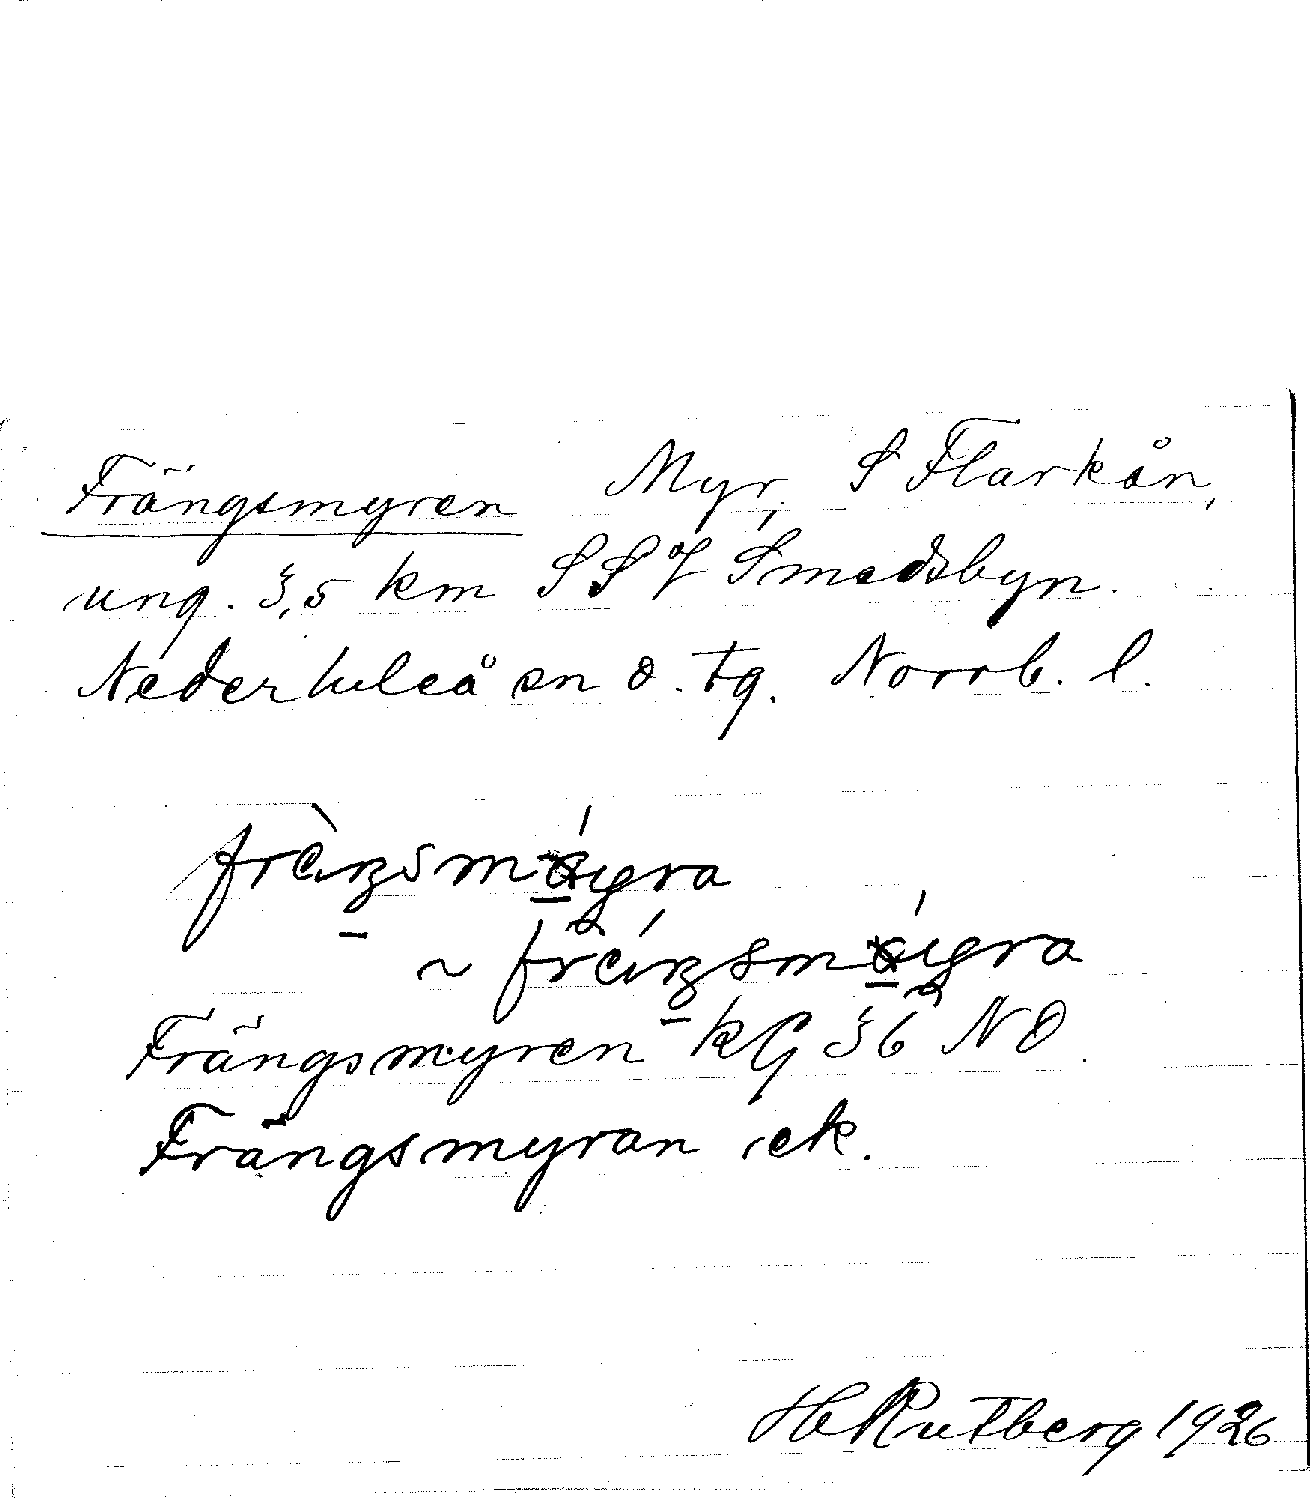 Frängsmyren Myr, S Flarkån,
ung. 3,5 km SSV Smedsbyn.
Nederluleå sn o. tg. Norrb. l.
~
Frängsmyren kG 36 NO.
Frängsmyran ek.
H Rutberg 1926